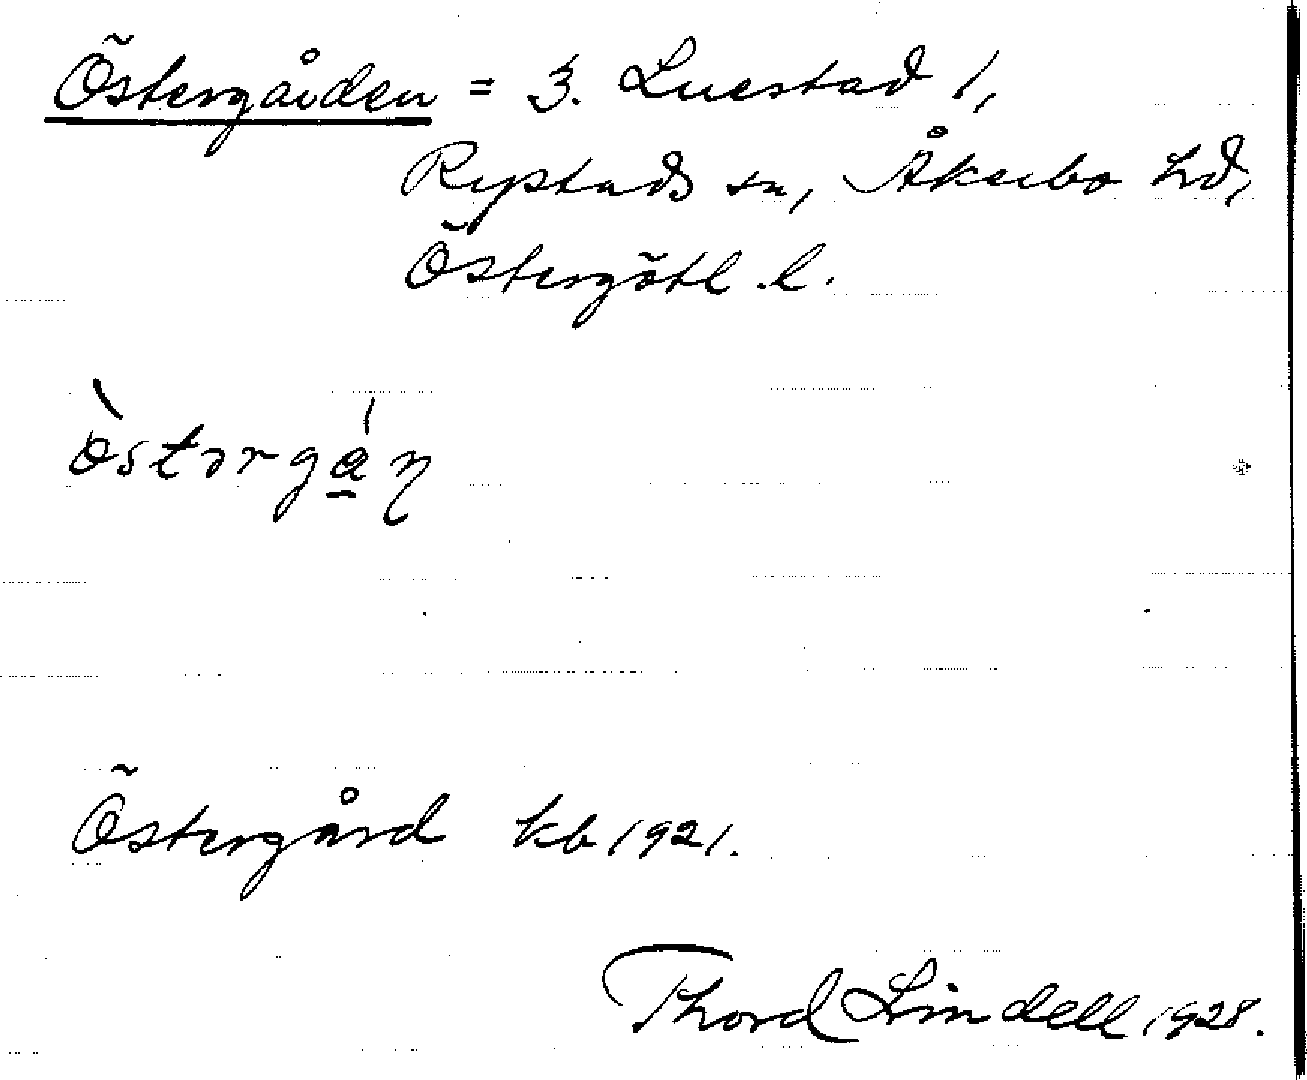 Östergården = 3. Luestad 1,
Rystads sn, Åkerbo hd,
Östergötl. l.
östərgån
Östergård kb 1921.
Thord Lindell 1928.